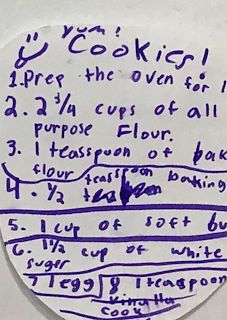 yum!
Cookies!
1. Prep the oven for 1
2. 2 3/4 cups of all
purpose Flour.
3. 1 teasspoon of bak
flour
4. 1/2 teasspoon baking
5. 1 cup of soft bu
6. 1 1/2 cup of white
suger
7 1 egg 8 1 teaspoon
Vinalla
cook